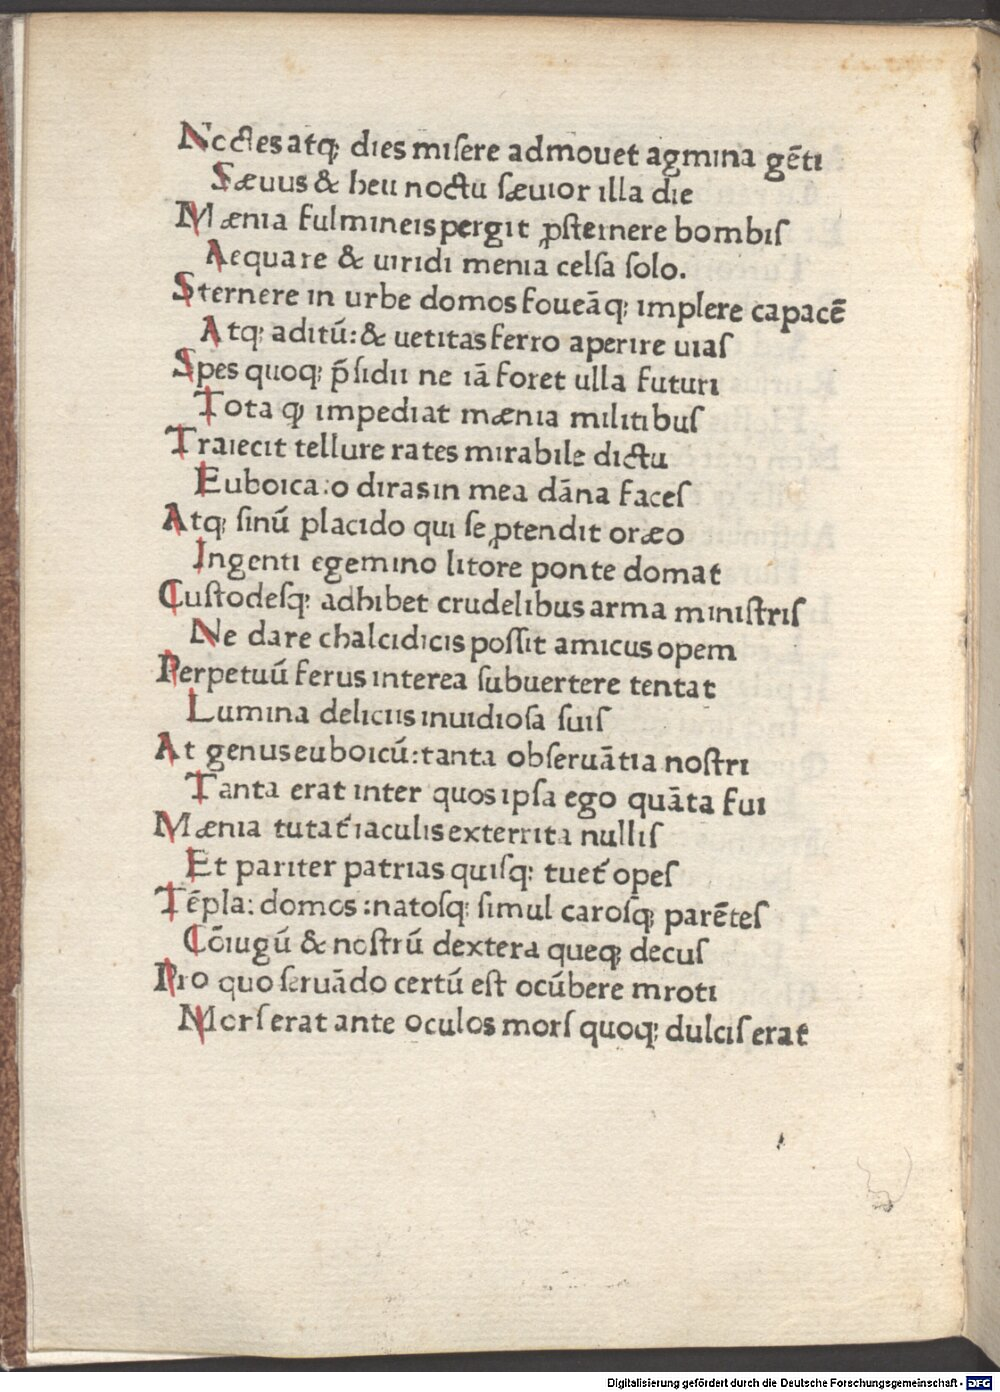 Noctesatq; dies miſere admouet agmina gẽti
Sæuus & heu noctu ſæuior illa die
Mænia fulmineis pergit ꝓſternere bombiſ
Aequare & uiridi menia celſa ſolo.
Sternere in urbe domos foueãq; implere capacẽ
Atq; aditũ: & uetitas ferro aperire uiaſ
Spes quoq; p̃ſidii ne iã foret ulla futuri
Tota q; impediat mænia militibuſ
Traiecit tellure rates mirabile dictu
Euboica:o diras in mea dãna faceſ
Atq; ſinũ placido qui ſe ꝓtendit oræo
Ingenti egemino litore ponte domat
Cuſtodeſq; adhibet crudelibus arma miniſtriſ
Ne dare chalcidicis poſſit amicus opem
Perpetuũ ferus interea ſubuertere tentat
Lumina deliciis inuidioſa ſuiſ
At genus euboicũ: tanta obſeruãtia noſtri
Tanta erat inter quos ipſa ego quãta fui
Mænia tutat᷑ iaculis exterrita nulliſ
Et pariter patrias quiſq: tuet᷑ opeſ
Tẽpla: domos :natoſq; ſimul caroſq; parẽteſ
Cõiugũ & noſtrũ dextera queq; decuſ
Pro quo ſeruãdo certũ eſt ocũbere mroti
Morſ erat ante oculos morſ quoq; dulciſ erat
Digitalisierung gefördert durch die Deutsche Forschungsgemeinschaft - DFG